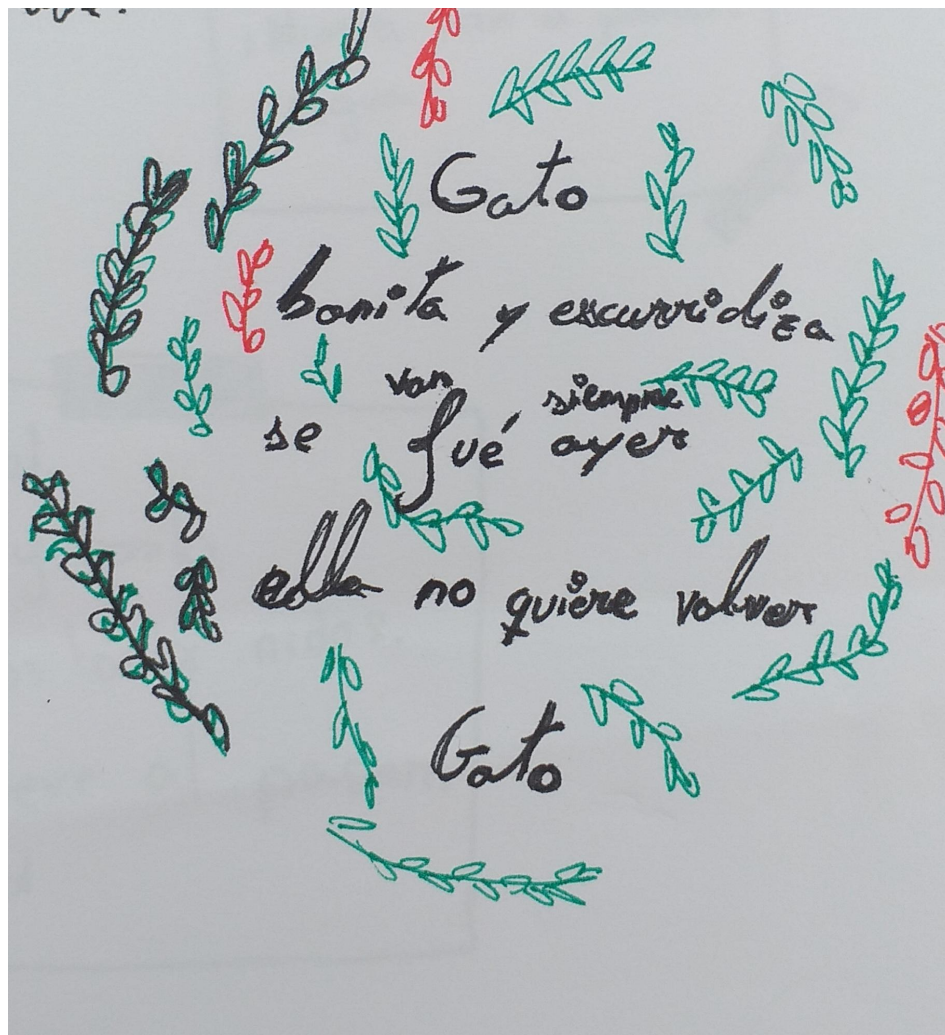 Gato
bonita y escurridiza
van siempre
se fué ayer
ella no quiere volver
Gato